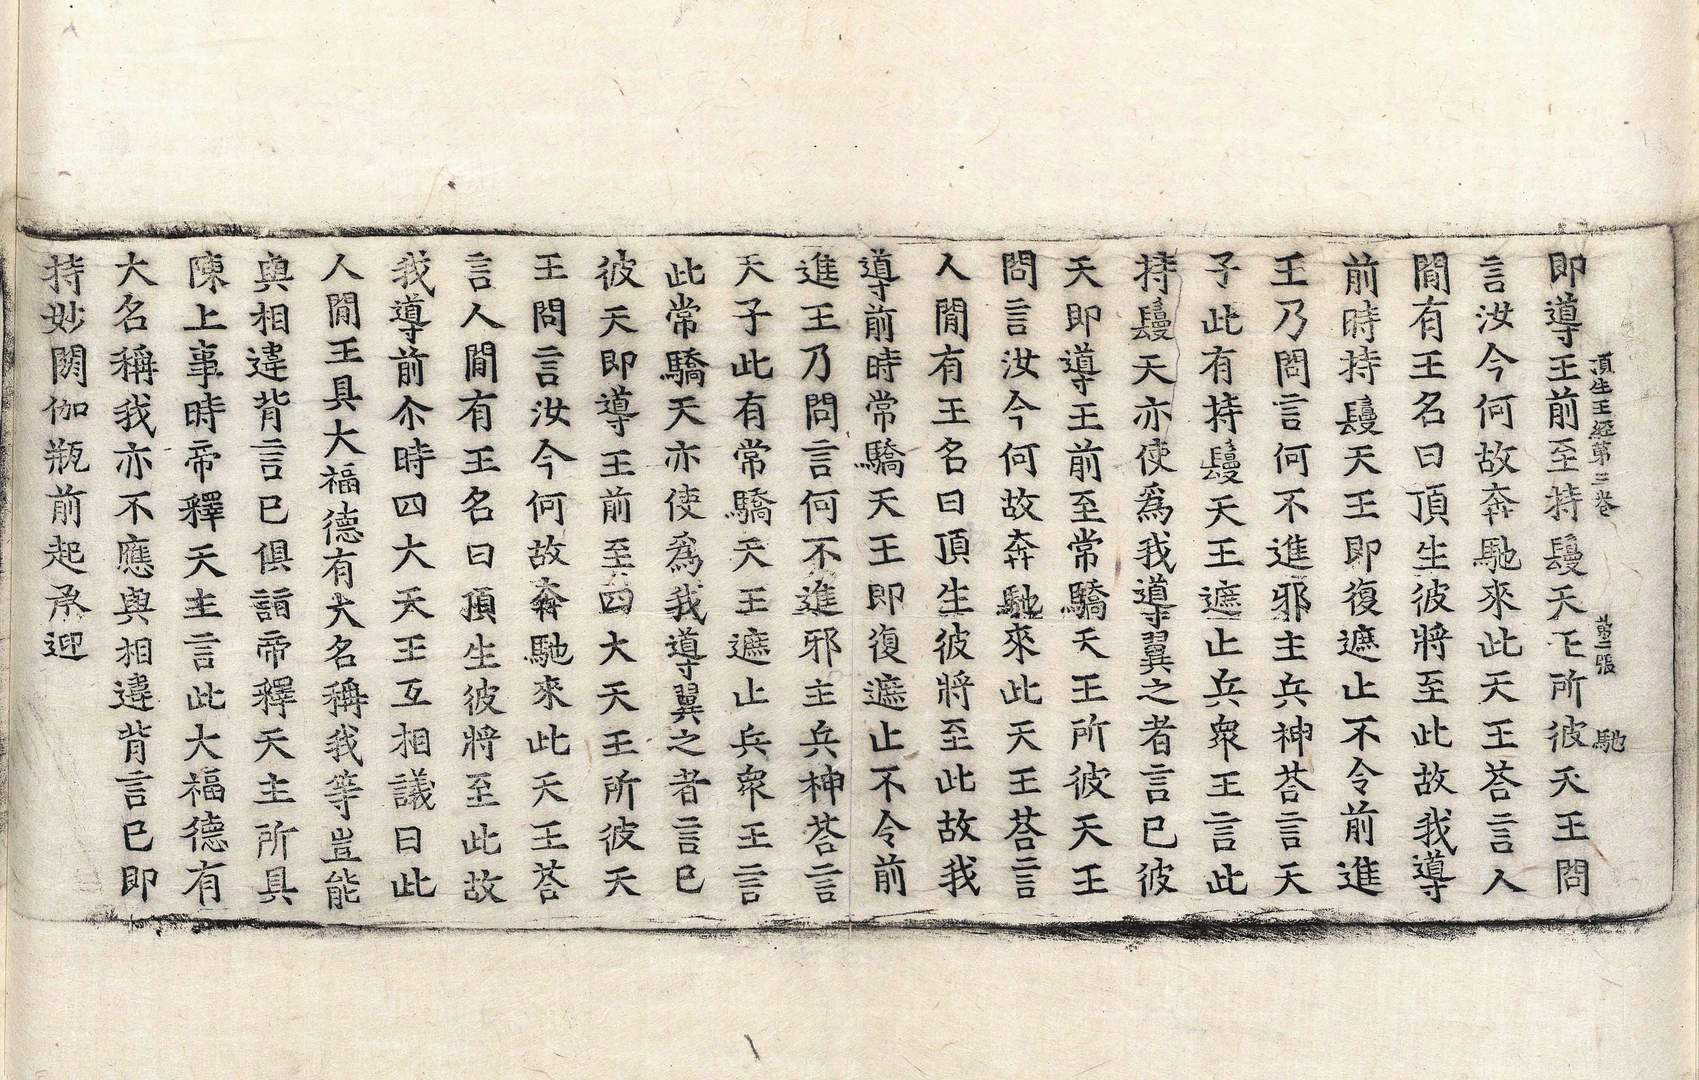 頂生王經第三卷　第二張　馳
即導王前至持鬘天王所彼天王問
言汝今何故奔馳來此天王荅言人
閒有王名曰頂生彼將至此故我導
前時持鬘天王即復遮止不令前進
王乃問言何不進邪主兵神荅言天
子此有持鬘天王遮止兵衆王言此
持鬘天亦使爲我導翼之者言已彼
天即導王前至常驕天王所彼天王
問言汝今何故奔馳來此天王荅言
人閒有王名曰頂生彼將至此故我
導前時常驕天王即復遮止不令前
進王乃問言何不進邪主兵神荅言
天子此有常驕天王遮止兵衆王言
此常驕天亦使爲我導翼之者言已
彼天即導王前至四大天王所彼天
王問言汝今何故奔馳來此天王荅
言人閒有王名曰頂生彼將至此故
我導前尒時四大天王互相議曰此
人閒王具大福德有大名稱我等豈能
與相違背言已俱詣帝釋天主所具
陳上事時帝釋天主言此大福德有
大名稱我亦不應與相違背言已即
持妙閼伽瓶前起承迎